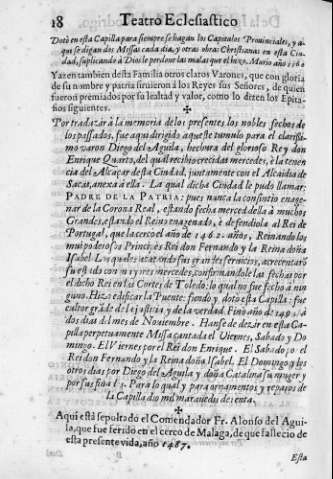 18 Teatro Eclesiastico
Dotò en esta Capilla para siempre se hagan los Capitulos Provinciales, y a-
qui se digan dos Missas cada dia, y otras obras Christianas en esta Ciu-
dad, suplicando à Dios le perdone las malas que el hizo. Murio año
Yazen tambien desta Familia otros claros Varones, que con gloria
de su nombre y patria siruieron à los Reyes sus Señores, de quien
fueron premiados por su lealtad y valor, como lo dizen los Epita-
fios siguientes.
Por tradazir à la memoria de los presentes los nobles fechos de
los passados, fue aqui dirigido aqueste tumulo para el clarissi-
mo varon Diego del Aguila, hechura del glorioso Rey don
Enrique Quarto, del qual recibio crecidas mercedes, è la tenen
cia del Alcaçar desta Ciudad, juntamente con el Alcaidia de
Sacas, anexa à ella. La qual dicha Ciudad le pudo llamar;
PADRE DE LA PATRIA: pues nunca la consintio enage-
nar de la Corona Real, estando fecha merced della à muchos
Grandes, estando el Reino enagenado, è defendiola al Rey de
Portugal, que la cerco el año de 1462. años, Reinando los
mui poderosos Principes Rei don Fernando y la Reina doña
Isabel. Los quales acatando sus grandes seruicios, acrecentarõ
su estado con mayores mercedes, confirmandole las fechas por
el dicho Rey en las Cortes de Toledo: lo qual no fue fecho à nin
guno. Hizo edificar la Puente: fundò y dotò esta Capilla: fue
cultor grãde de la justicia y de la verdad. Finò año de
dos dias del mes de Noviembre. Hanse de dezir en esta Ca-
pilla perpetuamente Missa cantada el Viernes, Sabado y Do
mingo. El Viernes, por el Rei don Enrique. El Sabado, por el
Rei don Fernando y la Reina doña Isabel. El Domingo y los
otros dias, por Diego del Aguila y doña Catalina su muger y
por sus fijos. Para lo qual y para ornamentos y reparos de
la Capilla dio mil marauedis de renta.
Aqui està sepultado el Comendador Fr. Alonso del Agui-
la, que fue ferido en el cerco de Malaga, de que fallecio de
esta presente vida, año 1487.
Esta